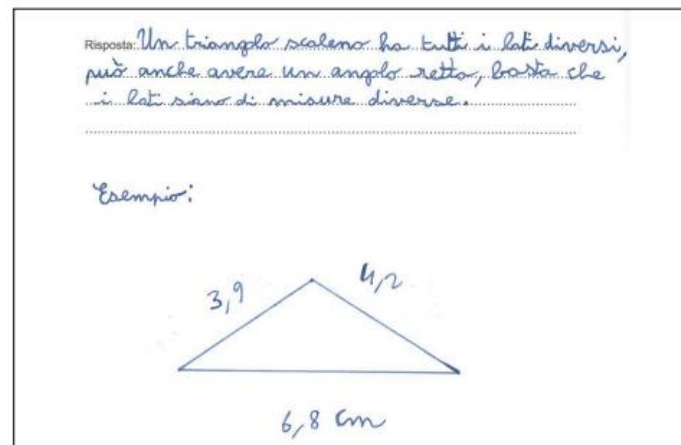 Risposta: Un triangolo scaleno ha tutti i lati diversi,
può anche avere un angolo retto, basta che
i lati siano di misure diverse.
Esempio:
3,9
4,2
6,8 cm